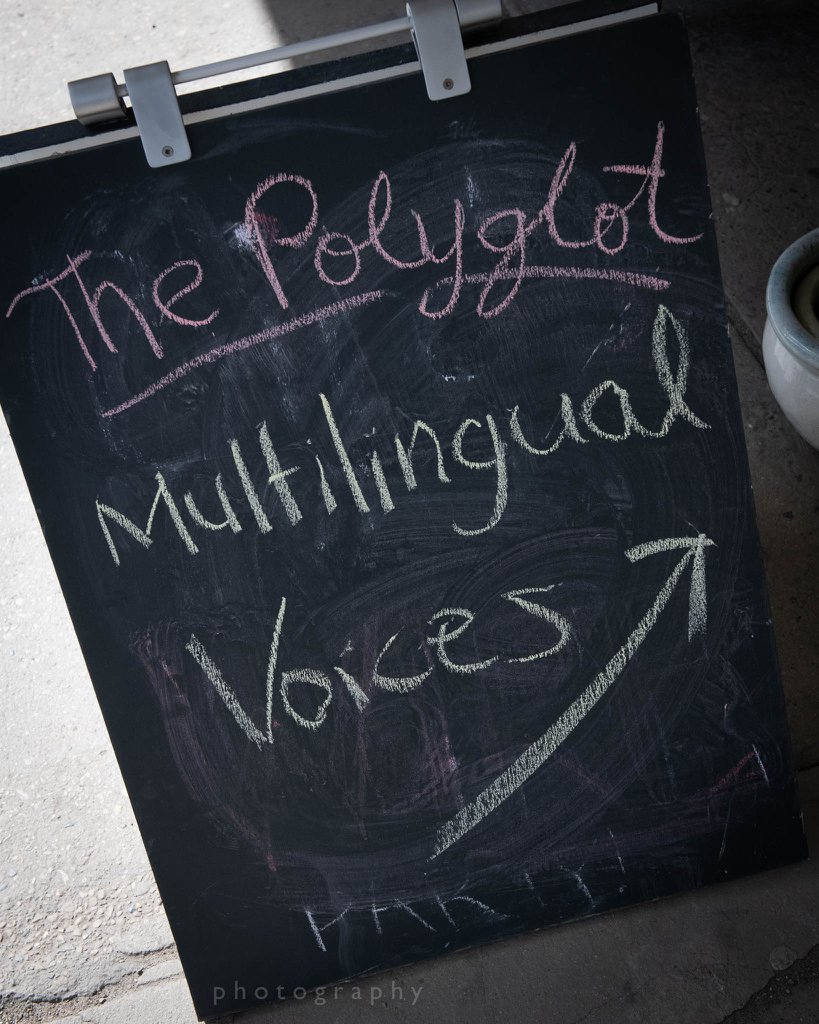 The Polyglot
Multilingual
Voices
photography